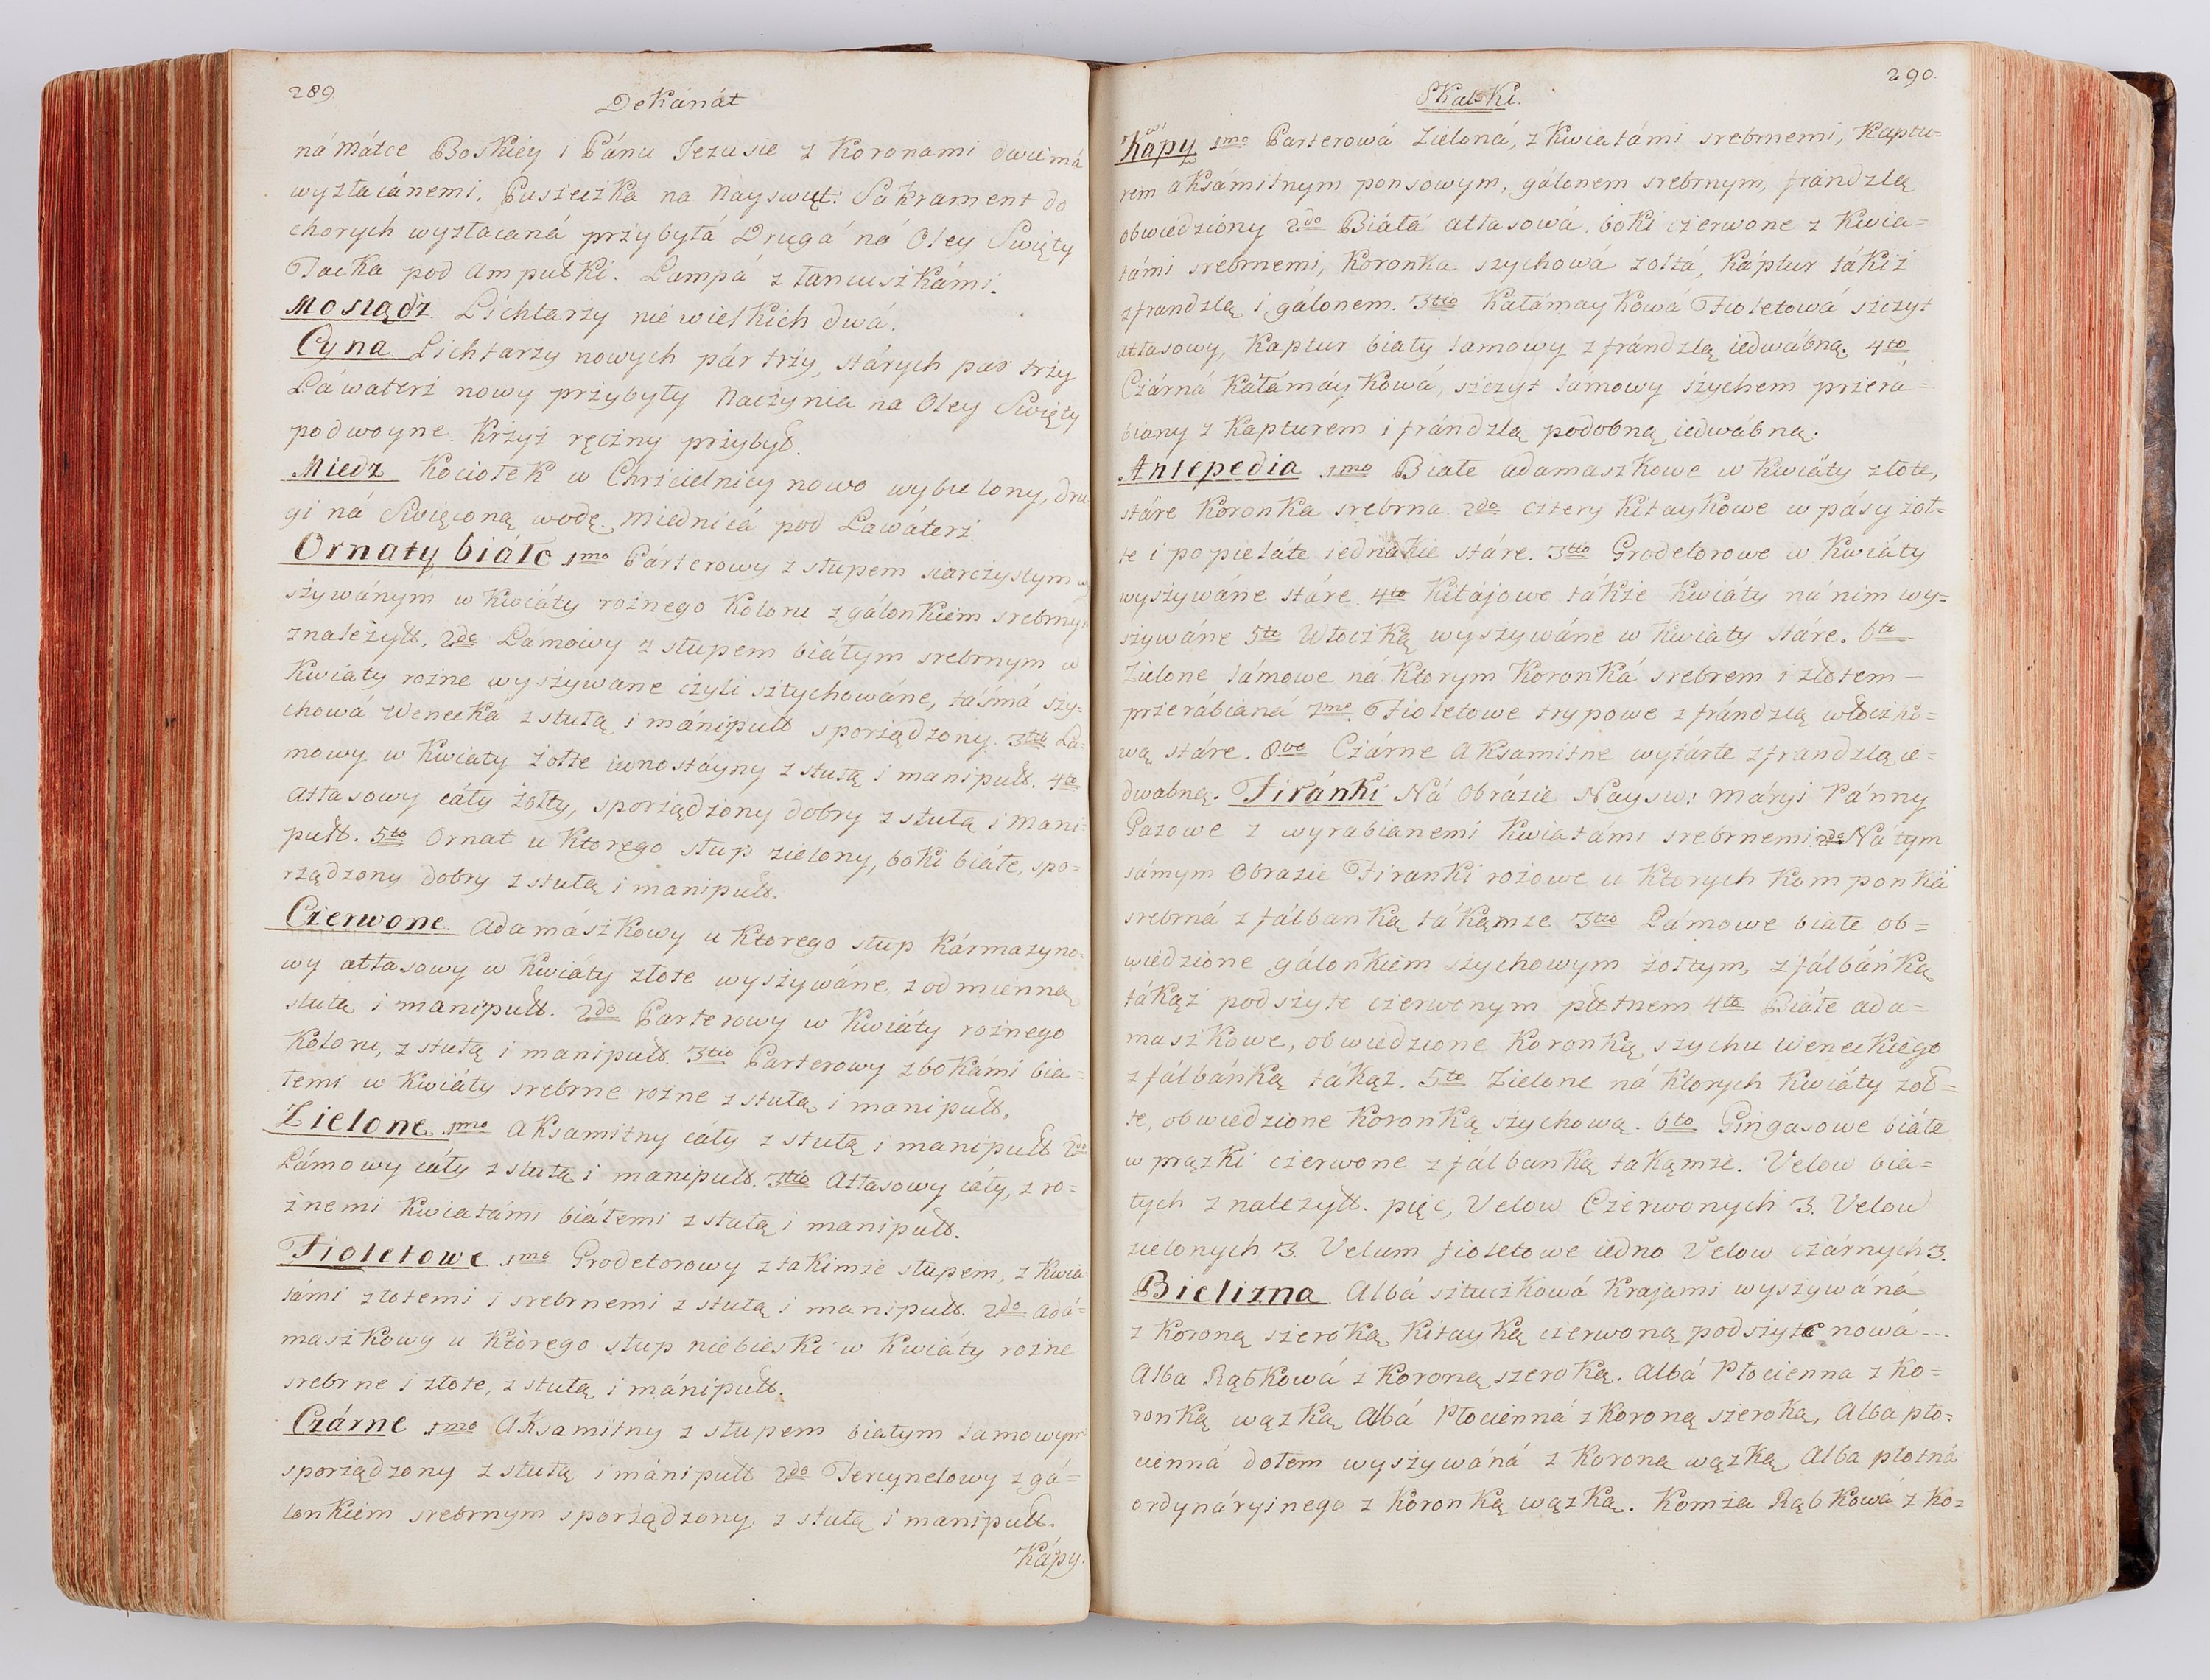 289
Dekánát
ná Mátce Boskiey i Pánu Jezusie z Koronami dwiemá
wyzłacánemi. Puszeczka na Nayswięt: Sakrament do
chorych wyzłacaná przybyłá Drugá ná Oley Swięty
Tacka pod Ampułki. Lampá z łancuszkámi.
Mosiądz Lichtarzy nie wielkich dwá.
Cyna Lichtarzy nowych pár trzy, stárych par trzy
Láwaterz nowy przybyły Naczynia na Oley Swięty
podwoyne. Krzyż ręczny przybył.
Miedz Kociołek w Chrzcielnicy nowo wybielony, dru
gi ná Swięconą wodę. Miednicá pod Lawáterz
Ornaty białe 1mo Párterowy z słupem siarczystym
szywánym w kwiáty rożnego koloru z gálonkiem srebrnym
z należytł. 2do Lámowy z słupem białym srebrnym w
kwiaty rożne wyszywane czyli sztychowáne, táśmá szy-
chowá Weneckà z stułą i mánipułł sporządzony. 3tio La-
mowy w kwiaty żołte iednostáyny z stułą i manipułł. 4to
Atłasowy cáły żołty, sporządzony dobry z stułą i mani-
pułł. 5to Ornat u ktorego słup zielony, boki białe, spo-
rządzony dobry z stułą i manipułł.
Czerwone Adamászkowy u ktorego słup Kármazyno-
wy atłasowy w kwiáty złote wyszywáne, z odmienną
stułą i manipułł. 2do Parterowy w kwiáty rożnego
koloru, z stułą i manipułł. 3tio Parterowy z bokámi bia-
łemi w kwiáty srebrne rożne z stułą i manipułł.
Zielone 1mo Aksamitny cáły z stułą i manipułł 2do
Lámowy cáły z stułą i manipułł. 3tio Atłasowy cáły, z ro-
żnemi kwiatámi białemi z stułą i manipułł.
Fioletowe 1mo Grodetorowy z takimże słupem, z kwia-
támi złotemi i srebrnemi z stułą i manipułł. 2do Adá-
maszkowy u ktòrego słup niebieski w kwiáty rożne
srebrne i złote, z stułą i mánipułł.
Czárne 1mo Aksamitny z słupem białym lamowym
sporządzony z stułą i mánipułł 2do Tercynelowy z gá-
lonkiem srebrnym sporządzony z stułą i manipułł.
Kápy.
290.
Skalski.
Kápy 1mo Parterowá Zieloná, z kwiatámi srebrnemi, Kaptu-
rem aksámitnym ponsowym, gálonem srebrnym, frandzlą
obwiedziony 2do Białá atłasowá, boki czerwone z kwia-
támi srebrnemi, Koronka szychowá żołtá, Káptur tákiż
z frandzlą i gálonem. 3tio Kałámaykowá Fioletowá szczyt
atłasowy, Kaptur biały lamowy z frándzlą iedwábną. 4to
Czárná Kałámáykowá, szczyt lamowy szychem przerá-
biany z Kapturem i frándzlą podobną iedwábną.
Antepedia 1mo Białe adamaszkowe w kwiáty złote,
stáre Koronka srebrna. 2do cztery Kitaykowe w pásy żoł-
te i popieláte iednakie stáre. 3tio Grodetorowe w kwiáty
wyszywáne stáre. 4to Kitájowe tákże kwiáty ná nim wy-
szywáne 5to Włoczką wyszywáne w kwiaty stáre. 6to
Zielone lámowe ná ktorym Koronká srebrem i złotem –
przerábianá 7mo Fioletowe trypowe z frándzlą włoczko-
wą stáre. 8vo Czárne Aksamitne wytárte z frandzlą ie-
dwabną. Firánki Ná Obrázie Naysw: Máryi Pánny
Gazowe z wyrabianemi kwiatámi srebrnemi. 2do Ná tym
sámym Obrazie Firanki rożowe u ktorych kamponká
srebrná z fálbanką tákąmże 3tio Lámowe białe ob-
wiedzione gálonkiem szychowym żołtym, z fálbánką
tákąż podszyte czerwonym płotnem 4to Białe ada-
maszkowe, obwiedzione Koronką szychu Weneckiego
z fálbánką tákąż. 5to Zielone ná ktorych kwiáty żoł-
te, obwiedzione Koronką szychową. 6to Gingasowe białe
w prążki czerwone z fálbanką takąmże. Velow bia-
łych z należytł. pięć, Velow Czerwonych 3. Velow
zielonych 3. Velum fioletowe iedno Velow czárnych 3.
Bielizna Albá sztuczkowá Krajami wyszywáná
z Koroną szeroką Kitayką czerwoną podszyta nowá---
Alba Rąbkowá z Koroną szeroką. Albá Płocienna z Ko-
ronką wązką Albá Płocienná z Koroną szeroką, Alba pło-
cienná dołem wyszywáná z Koroną wązką Alba płotná
ordynáryinego z Koronką wązką. Komża Rąbkowá z Ko-